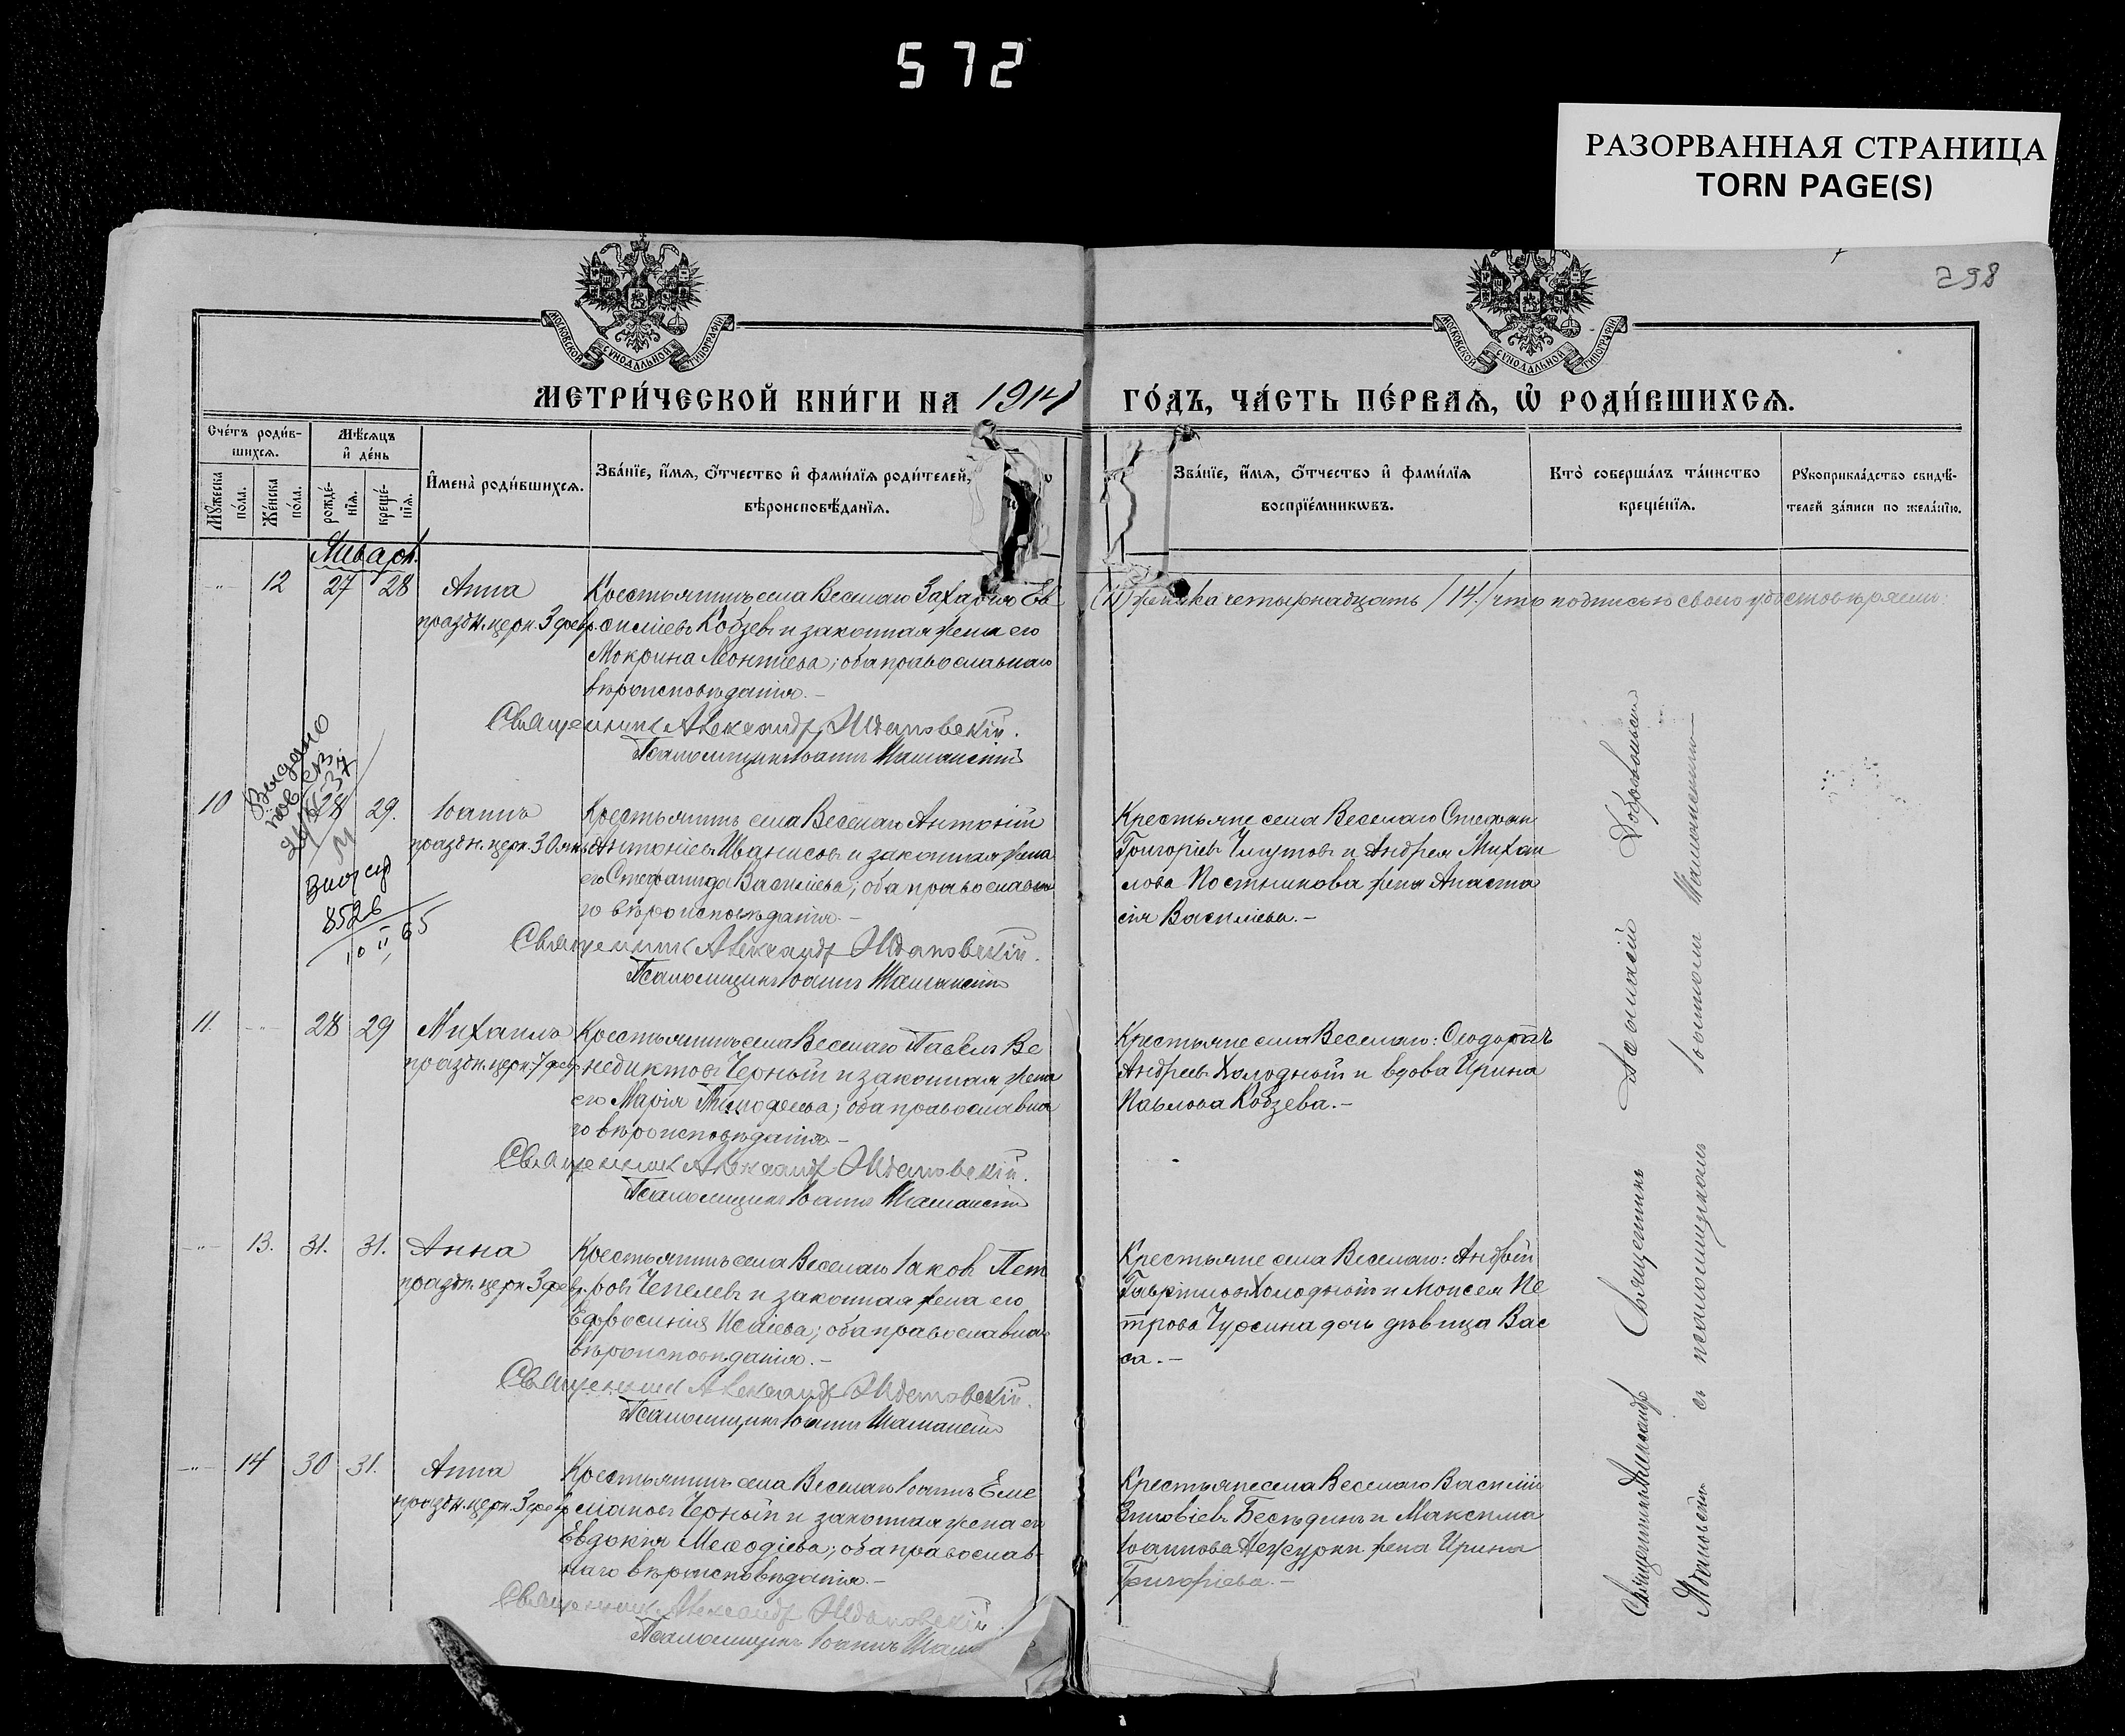 572
РАЗОРВАННАЯ СТРАНИЦА
TORN PAGE(S)
298
МОСКОВСКОЙ СѴНОДАЛЬНОЙ ТИПОГРАФІИ
МОСКОВСКОЙ СѴНОДАЛЬНОЙ ТИПОГРАФІИ
МЕТРИ́ЧЕСКОЙ КНИ́ГИ НА 1914 ГО́ДЪ, ЧА́СТЬ ПЕ́РВАѦ, Ѽ РОДИ́ВШИХСѦ.
Сче́тъ роди́в-
шихсѧ.
Мꙋ́жеска по́ла.
Же́нска по́ла.
Мѣ́сѧцъ
и҆ де́нь
рожде́-
нїѧ.
креще́-
нїѧ.
И҆мена̀ роди́вшихсѧ.
Зва́нїе, и҆́мѧ, ѻ҆́тчество и҆ фами́лїѧ роди́телей,
вѣроисповѣ́данїѧ.
Зва́нїе, и҆́мѧ, ѻ҆́тчество и҆ фами́лїѧ
воспрїе́мникѡвъ.
Кто̀ соверша́лъ та́инство
креще́нїѧ.
Рꙋкоприкла́дство свидѣ́-
телей за́писи по жела́нїю.
Январь.
12 27 28 Анна
праздн. церк. 3 февр.
Крестьянинъ села Веселаго Захарія
Кобзевъ и законная жена его
Мокрина Леонтіева; оба православнаго
вѣроисповѣданія.–
Священникъ Александръ Ждановскій.
Псаломщикъ Іоаннъ
четырнадцать /14./ что подписью своею удостовѣряемъ:
Выдано
10 28 29. Іоаннъ
праздн. церк. 30 янв.
8526
10 II 65
Крестьянинъ села Веселаго Антоній
Антоніевъ Иванисовъ и законная жена
его Стефанида Василіева; оба православна
го вѣроисповѣданія.–
Священникъ Александръ Ждановскій.
Псаломщикъ Іоаннъ
Крестьяне села Веселаго Стефанъ
Григоріевъ и Андрея Михаи
лова Постникова жена Анаста
сія Василіева.–
11. 28 29 Михаилъ
праздн. церк. 7 февр.
Крестьянинъ села Веселаго Павелъ Ве
недиктовъ Черный и законная жена
его Марія Тимофеева; оба православна
го вѣроисповѣданія–
Священникъ Александръ Ждановскій.
Псаломщикъ Іоаннъ
Крестьяне села Веселаго: Ѳеодоръ
Андреевъ Холодный и вдова Ирина
Павлова Кобзева.–
13. 31. 31. Анна
праздн. церк. 3 февр.
Крестьянинъ села Веселаго Іаковъ Пет
ровъ Чепелевъ и законная жена его
Евфросинія Исаіева; оба православнаго
вѣроисповѣданія.–
Священникъ Александръ Ждановскій.
Псаломщикъ Іоаннъ
Крестьяне села Веселаго: Андрей
Гавріиловъ Холодный и Моисея Пе
трова Чурсина дочь дѣвица Вас
са.–
14 30 31. Анна
праздн. церк. 3 февр.
Крестьянинъ села Веселаго Іоаннъ Еме
ліановъ Черный и законная жена его
Евдокія Меѳодіева; оба православ-
наго вѣроисповѣданія.–
Священникъ Александръ Ждановскій
Псаломщикъ Іоаннъ
Крестьяне села Веселаго Василій
Зиновіевъ Бесѣдинъ и Максима
Іоаннова жена Ирина
Григоріева.–
Священникъ Александръ Священникъ
Ждановскій съ псаломщикомъ Іоанномъ